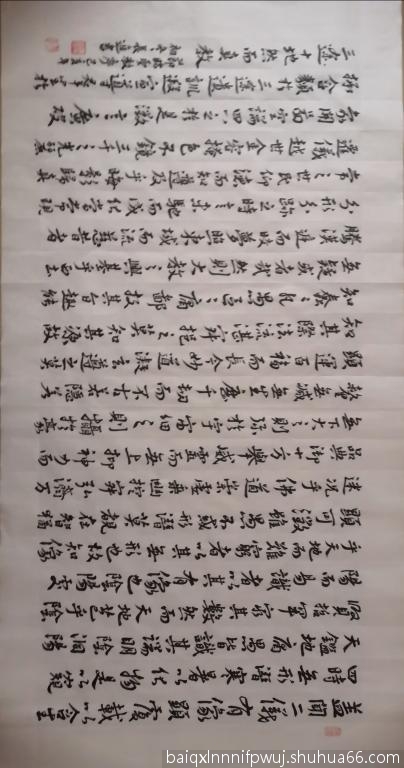 蓋聞二儀有像顯覆載以含生
四時無形潛寒暑以化物是以窺
天鑑地庸愚皆識其端明陰洞陽
賢哲罕窮其數然而天地苞乎陰
陽而易識者以其有像也陰陽處
乎天地而難窮者以其無形也故知像
顯可徵雖愚不惑形潛莫覩在智猶
迷況乎佛道崇虛乘幽控寂弘濟万
品典御十方舉威靈而無上抑神力而
無下大之則弥於宇宙細之則攝於豪
釐無滅無生歷千劫而不古若隱若
顯運百福而長今妙道凝玄遵之莫
知其際法流湛寂挹之莫知其源故
知蠢蠢凡愚區區庸鄙投其旨趣能
無疑惑者哉然則大教之興基乎西土
騰漢庭而皎夢照東域而流慈昔者
分形分跡之時言未馳而成化當常現
常之世民仰德而知遵及乎晦影歸真
遷儀越世金容掩色不鏡三千之光麗
象開圖空端四八之相於是微言廣被
拯含類於三途遺訓遐宣導群生於
十地然而真教
baiqxlnnnifpwuj.shuhua66.com